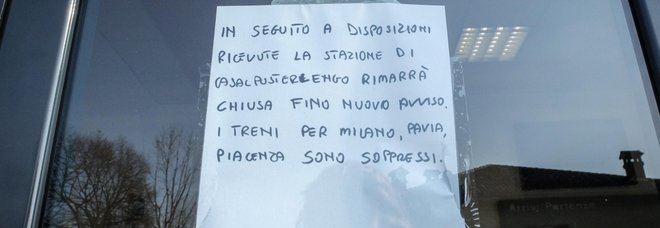 IN SEGUITO A DISPOSIZIONI
RICEVUTE LA STAZIONE DI
CASALPUSTERLENGO RIMARRÀ
CHIUSA FINO NUOVO AVVISO.
I TRENI PER MILANO, PAVIA,
PIACENZA SONO SOPPRESSI.
Arrivi/Partenze